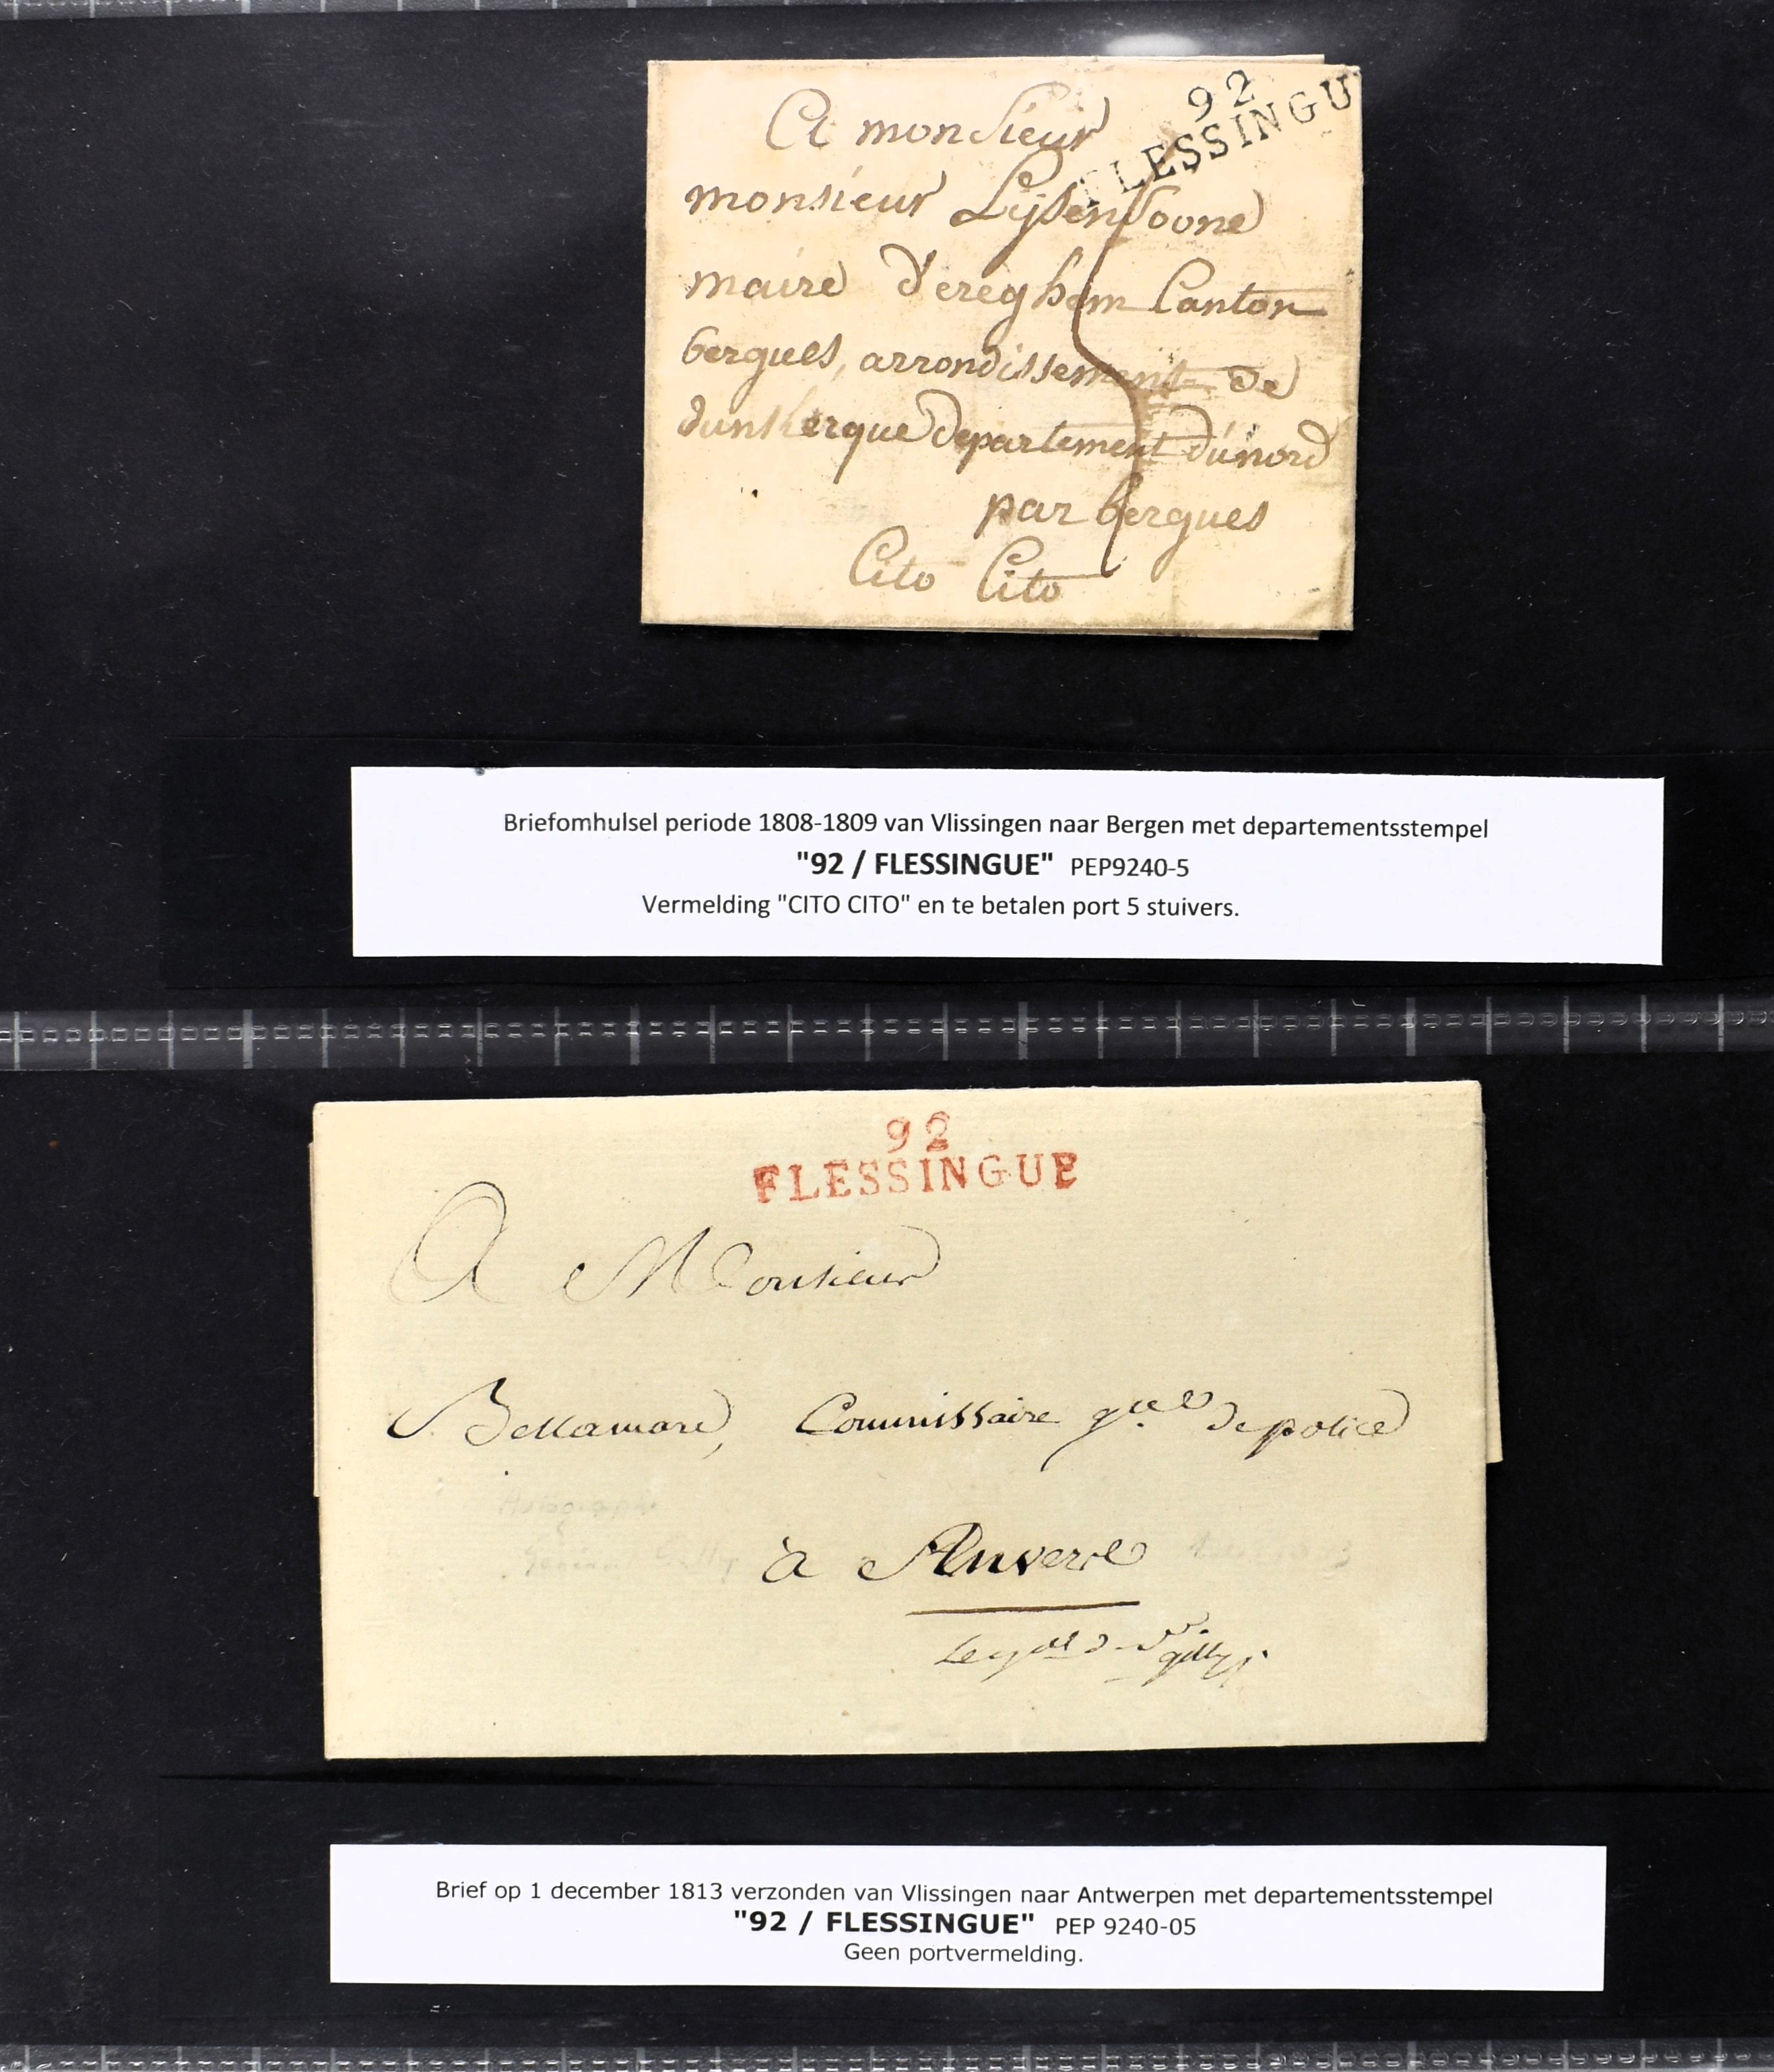 92
FLESSINGU
A monsieur
monsieur Lijsensoone
maire d'ereghem Canton
bergues, arrondissement de
dunkerque departement du nord
par bergues
Cito Cito
Briefomhulsel periode 1808-1809 van Vlissingen naar Bergen met departementsstempel
"92 / FLESSINGUE" PEP9240-5
Vermelding "CITO CITO" en te betalen port 5 stuivers.
92
FLESSINGUE
A Monsieur
Bellamare, Commissaire gr.al de police
à Anvers
Brief op 1 december 1813 verzonden van Vlissingen naar Antwerpen met departementsstempel
"92 / FLESSINGUE" PEP 9240-05
Geen portvermelding.